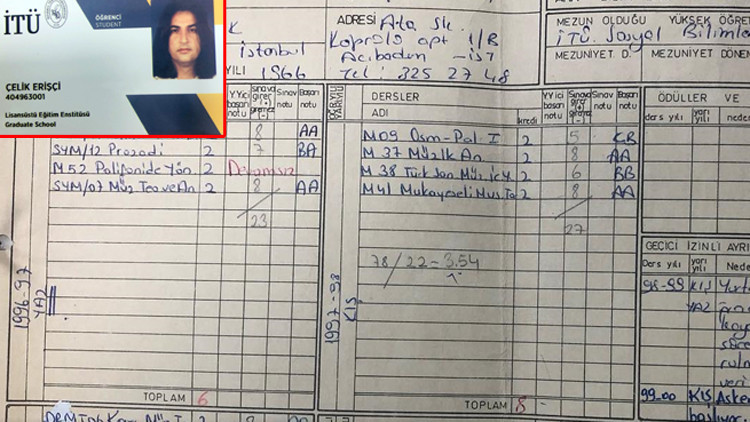 İTÜ
ÖĞRENCİ
STUDENT
ÇELİK ERİŞÇİ
404963001
Lisansüstü Eğitim Enstitüsü
Graduate School
K
İstanbul
YILI 1966
ADRESİ Ata Sk.
Koproló apt 1/B
Acıbadem -İST
Tel: 325 27 48
MEZUN OLDUĞU YÜKSEK ÖĞRE
İTÜ. Sosyal Bilimler
MEZUNİYET D. MEZUNİYET DÖNEM
Y.Yıiçi başarı notu Sınava girer (+) giremez (-) Sınav notu Başarı notu
8 AA
SYM/12 Prozodi 2 7 BA
M52 Polifonide Yön. 2 Devamsız
SYM/07 Müz Teo ve An 2 8 AA
23
1996-97
YAZ
TOPLAM 6
DERSLER
ADI kredi Y.Yıiçi başarı notu Sınava girer (+) giremez (-) Sınav notu Başarı notu
M09 Osm-Pal. I 2 5 CB
M 37 Müzik An. 2 8 AA
M 38 Türk San Müz. 2 6 BB
M41 Mukayeseli Mus 2 8 AA
27
78/22=3.54
1997-98
KIŞ
TOPLAM 8
ÖDÜLLER VE
ders yılı yarı yılı nede
GEÇİCİ İZİNLİ AYRI
Ders yılı yarı yılı Nede
98-99 KIŞ Yurt
YAZ
99-00 KIŞ Asker
başlıyor